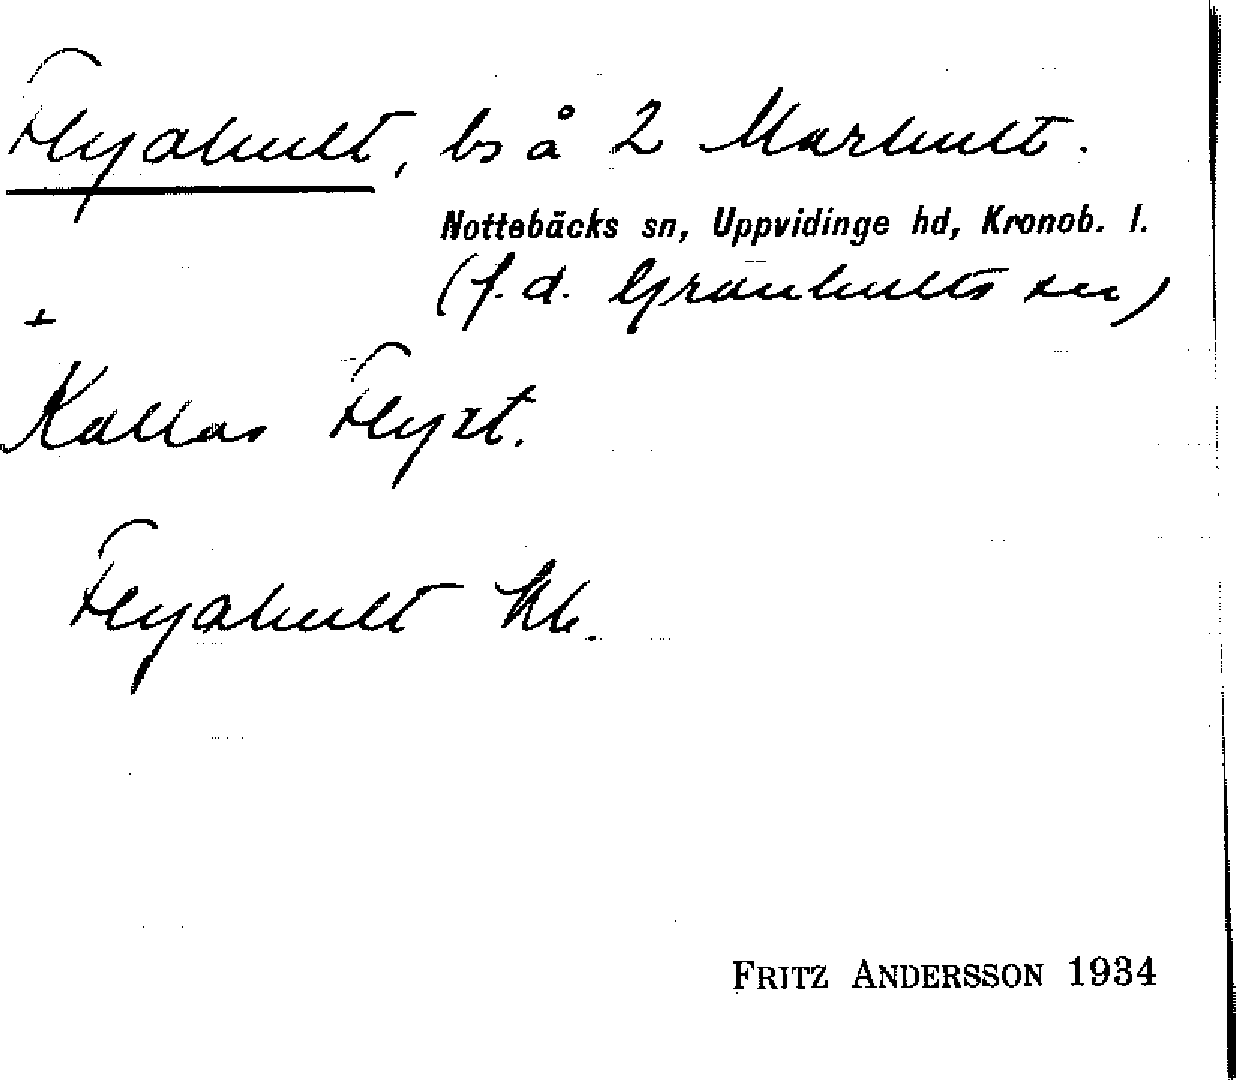 Flyahult, bs å 2 Marhult.
Nottebäcks sn, Uppvidinge hd, Kronob. l.
(f.d. Granhults sn)
+
Kallas Flyet.
Flyahult kb.
FRITZ ANDERSSON 1934